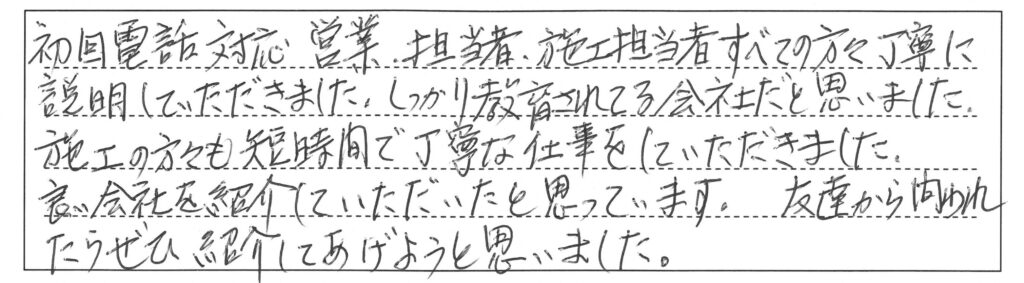 初回電話対応 営業.担当者.施工担当者すべての方々丁寧に
説明していただきました。しっかり教育されてる会社だと思いました。
施工の方々も短時間で丁寧な仕事をしていただきました。
良い会社を紹介していただいたと思っています。 友達から問われ
たらぜひ紹介してあげようと思いました。